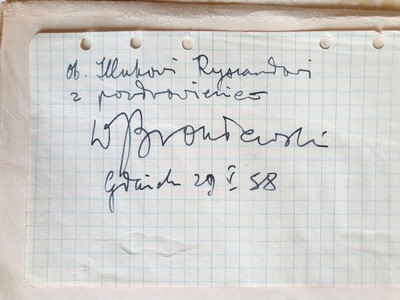 ob. Ilukowi Ryszardowi
z pozdrowieniem
W Broniewski
Gdańsk 29 V 58